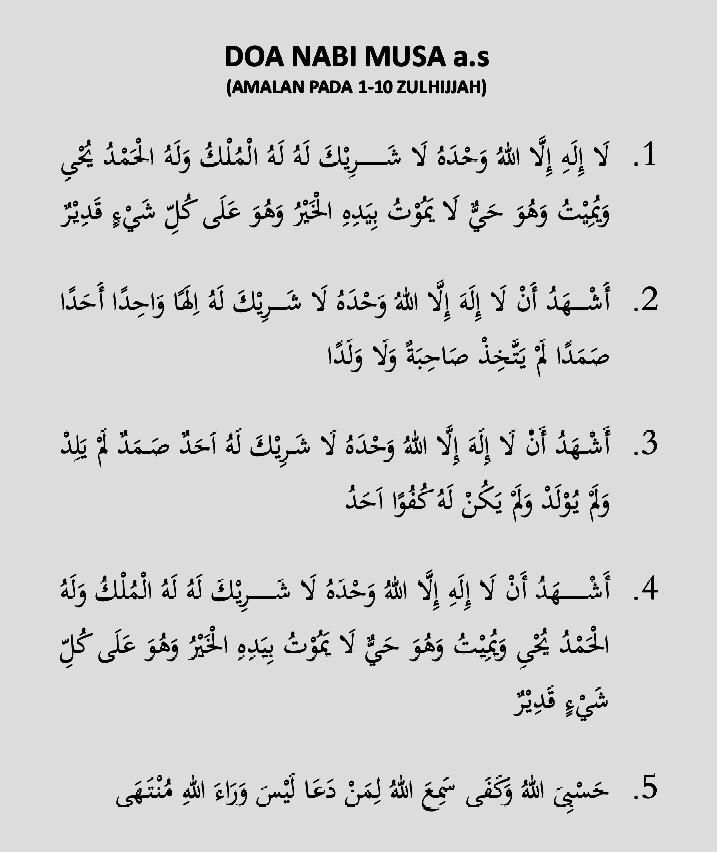 DOA NABI MUSA a.s
(AMALAN PADA 1-10 ZULHIJJAH)
1. لَا إِلَهِ إِلَّا اللهُ وَحْدَهُ لَا شَـــرِيْكَ لَهُ لَهُ الْمُلْكُ وَلَهُ الْحَمْدُ يُحْيِ
وَيُمِيْتُ وَهُوَ حَيٌّ لَا يَمُوْتُ بِيَدِهِ الْخَيْرُ وَهُوَ عَلَى كُلِّ شَيْءٍ قَدِيْرٌ
2. أَشْـــهَدُ أَنْ لَا إِلَهَ إِلَّا اللهُ وَحْدَهُ لَا شَـــرِيْكَ لَهُ اِلَهًا وَاحِدًا أَحَدًا
صَمَدًا لَمْ يَتَّخِذْ صَاحِبَةً وَلَا وَلَدًا
3. أَشْـــهَدُ أَنْ لَا إِلَهَ إِلَّا اللهُ وَحْدَهُ لَا شَـرِيْكَ لَهُ اَحَدٌ صَـمَدٌ لَمْ يَلِدْ
وَلَمْ يُوْلَدْ وَلَمْ يَكُنْ لَهُ كُفُوًا اَحَدُ
4. أَشْـــهَدُ أَنْ لَا إِلَهِ إِلَّا اللهُ وَحْدَهُ لَا شَـــرِيْكَ لَهُ لَهُ الْمُلْكُ وَلَهُ
الْحَمْدُ يُحْيِ وَيُمِيْتُ وَهُوَ حَيٌّ لَا يَمُوْتُ بِيَدِهِ الْخَيْرُ وَهُوَ عَلَى كُلِّ
شَيْءٍ قَدِيْرٌ
5. حَسْبِيَ اللهُ وَكَفَى سَمِعَ اللهُ لِمَنْ دَعَا لَيْسَ وَرَاءَ اللهِ مُنْتَهَى